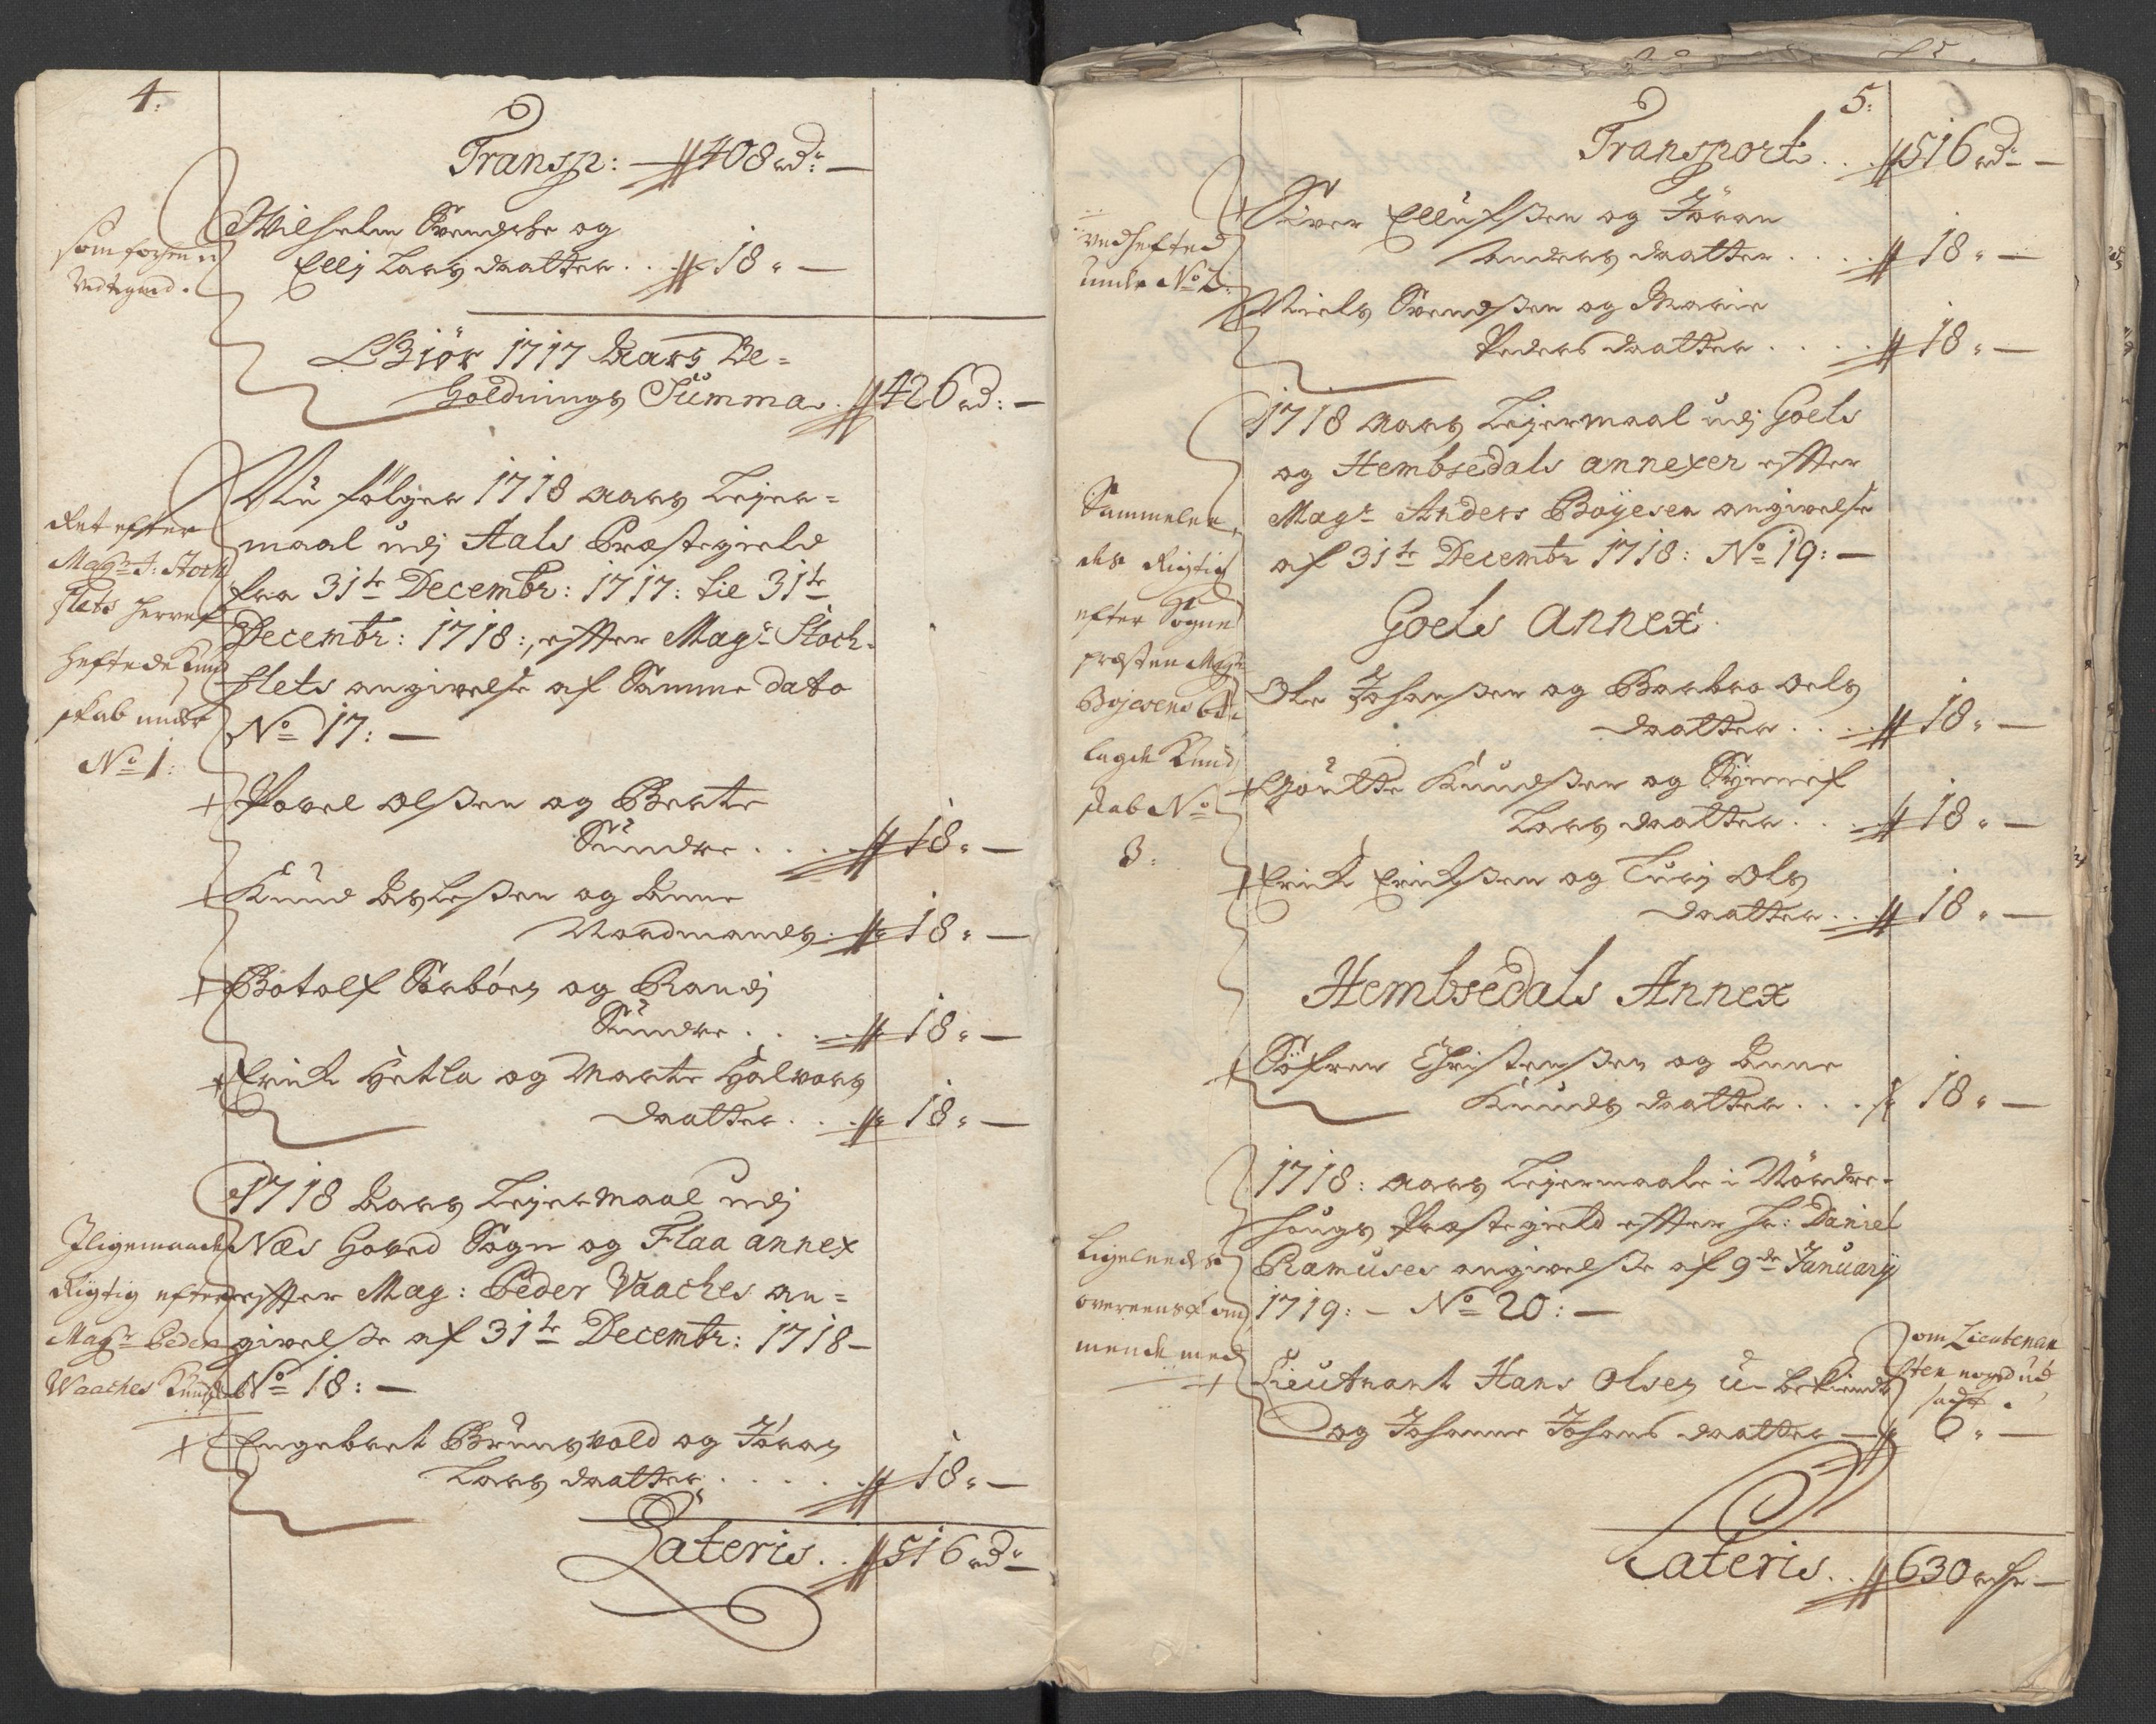 4.
Transp: — 408 rd: —
Wilhelm Svendsche og
Elli Lars daatter . . 18 " —
som forhen er
Vedtegned.
Giör 1717 Aars Be=
holdnings Summa . 426 rd: —
Nu fölger 1718 aars Leyer=
maal udj Aals Præstegield
fra 31te Decembr: 1717: til 31te
Decembr: 1718:, effter Magr Stoch=
flets angivelse af Samme dato
No 17: —
Ret efter
Magr J: Stoch
flets herved
heftede Kund
skab under
No 1:
Povel Olssen og Berte
Sundre . . . 18 " —
Knud Aslessen og Anne
Nordmands . 18 " —
Botolf Sørbøen og Randj
Sundre . . . 18 " —
Erich Hetla og Marte Halvors
daatter . . . 18 " —
1718 Aars Leyermaal udj
Næs Hoved Sogn og Flaa annex
effter Mag: Peder Vaaches an=
givelsse af 31te Decembr: 1718 —
No 18: —
Iligemaade
Rigtig efter
Magr Peder
Waaches Kundskab
Engebret Brunsvold og Jöran
Lars daatter . . . . . 18 " —
Lateris . . 516 rdr —
5:
Transport . . . 516 rdr —
Siver Ellufssen og Jöran
Anders daatter . . . . 18 " —
vedhefted
under No 2:
Niels Svendssen og Marie
Peders daatter . . . . . 18 " —
1718 aars Leyermaal udj Goels
og Hembsedals annexer effter
Magr Anders Boyesen angivelse
af 31te Decembr 1718: No 19: —
Sammelee,
des Rigtig
efter Sogne
præsten Magr
Bojesens bei
lagde Kund,
skab No
3:
Goels Annex
Ole Johanssen og Barbro Oels
daatter . . . . 18 " —
Goutte Knudssen og Synnef
Lars daatter . . . . 18 " —
Erich Erichssen og Turj Ols
daatter . . . 18 " —
Hembsedals Annex
Söfren Christenssen og Anne
Knuds daatter . . . 18 " —
1718: aars Leyermaale i Nordre=
hougs Præstegield effter hr: Daniel
Ramuses angivelsse af 9de January
1719: — No 20: —
Ligeleedes
overeenskom
mende med
Lieutnant Hans Olsen U-bekiendt
og Johanne Johans daatter — 6 " —
om Lieutenan
ten noged ud
sadt.
Lateris . . 630 rdr —